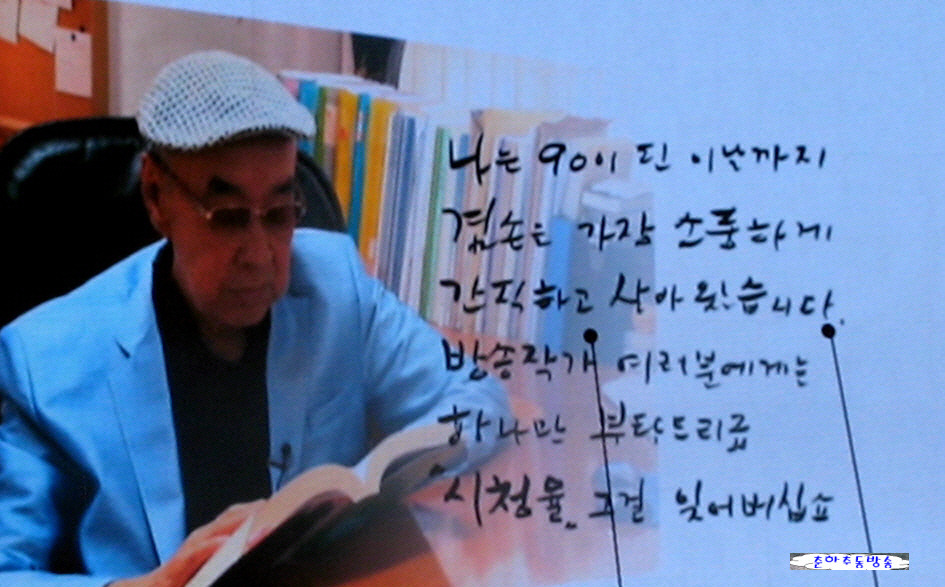 나는 90이 된 이날까지
겸손은 가장 소중하게
간직하고 살아 왔습니다.
방송작가 여러분에게는
하나만 부탁드리죠
“시청율„ 그걸 잊어버십쇼
춘하추동방송